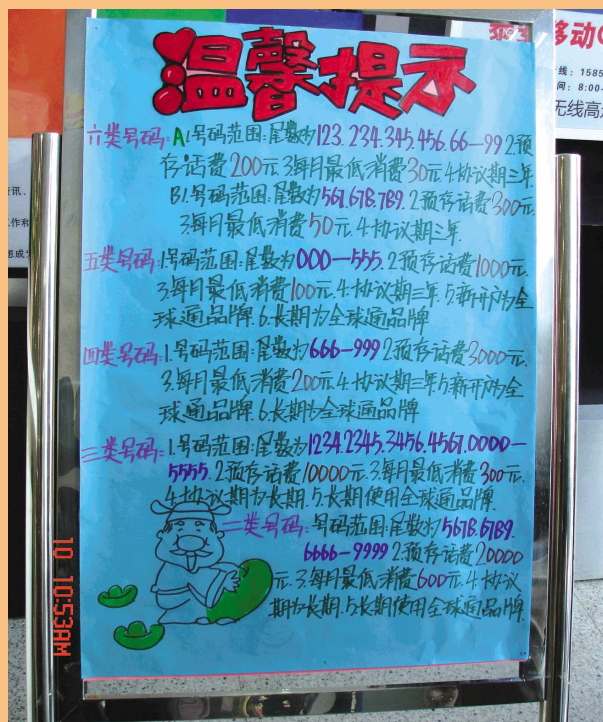 温馨提示
六类号码:A1.号码范围:尾数为123.234.345.456.66—99 2.预
存话费200元.3.每月最低消费30元.4.协议期三年
B1.号码范围:尾数为567.678.789.2.预存话费300元.
3.每月最低消费50元.4.协议期三年.
五类号码:1.号码范围:尾数为000—555.2.预存话费1000元.
3.每月最低消费100元.4.协议期三年.5.新开户为全
球通品牌.6.长期为全球通品牌
四类号码:1.号码范围:尾数为666-999 2.预存话费3000元.
3.每月最低消费200元.4.协议期三年.5.新开户为全
球通品牌.6.长期为全球通品牌
三类号码:1.号码范围:尾数为1234.2345.3456.4567.0000—
5555.2.预存话费10000元.3.每月最低消费300元.
4.协议期为长期.5.长期使用全球通品牌.
二类号码:号码范围:尾数为5678.6789.
6666-9999 2.预存话费20000
元.3.每月最低消费600元.4.协议
期为长期.5.长期使用全球通品牌.
移动
线:1585
间:8:00-
无线高
10 10:53AM